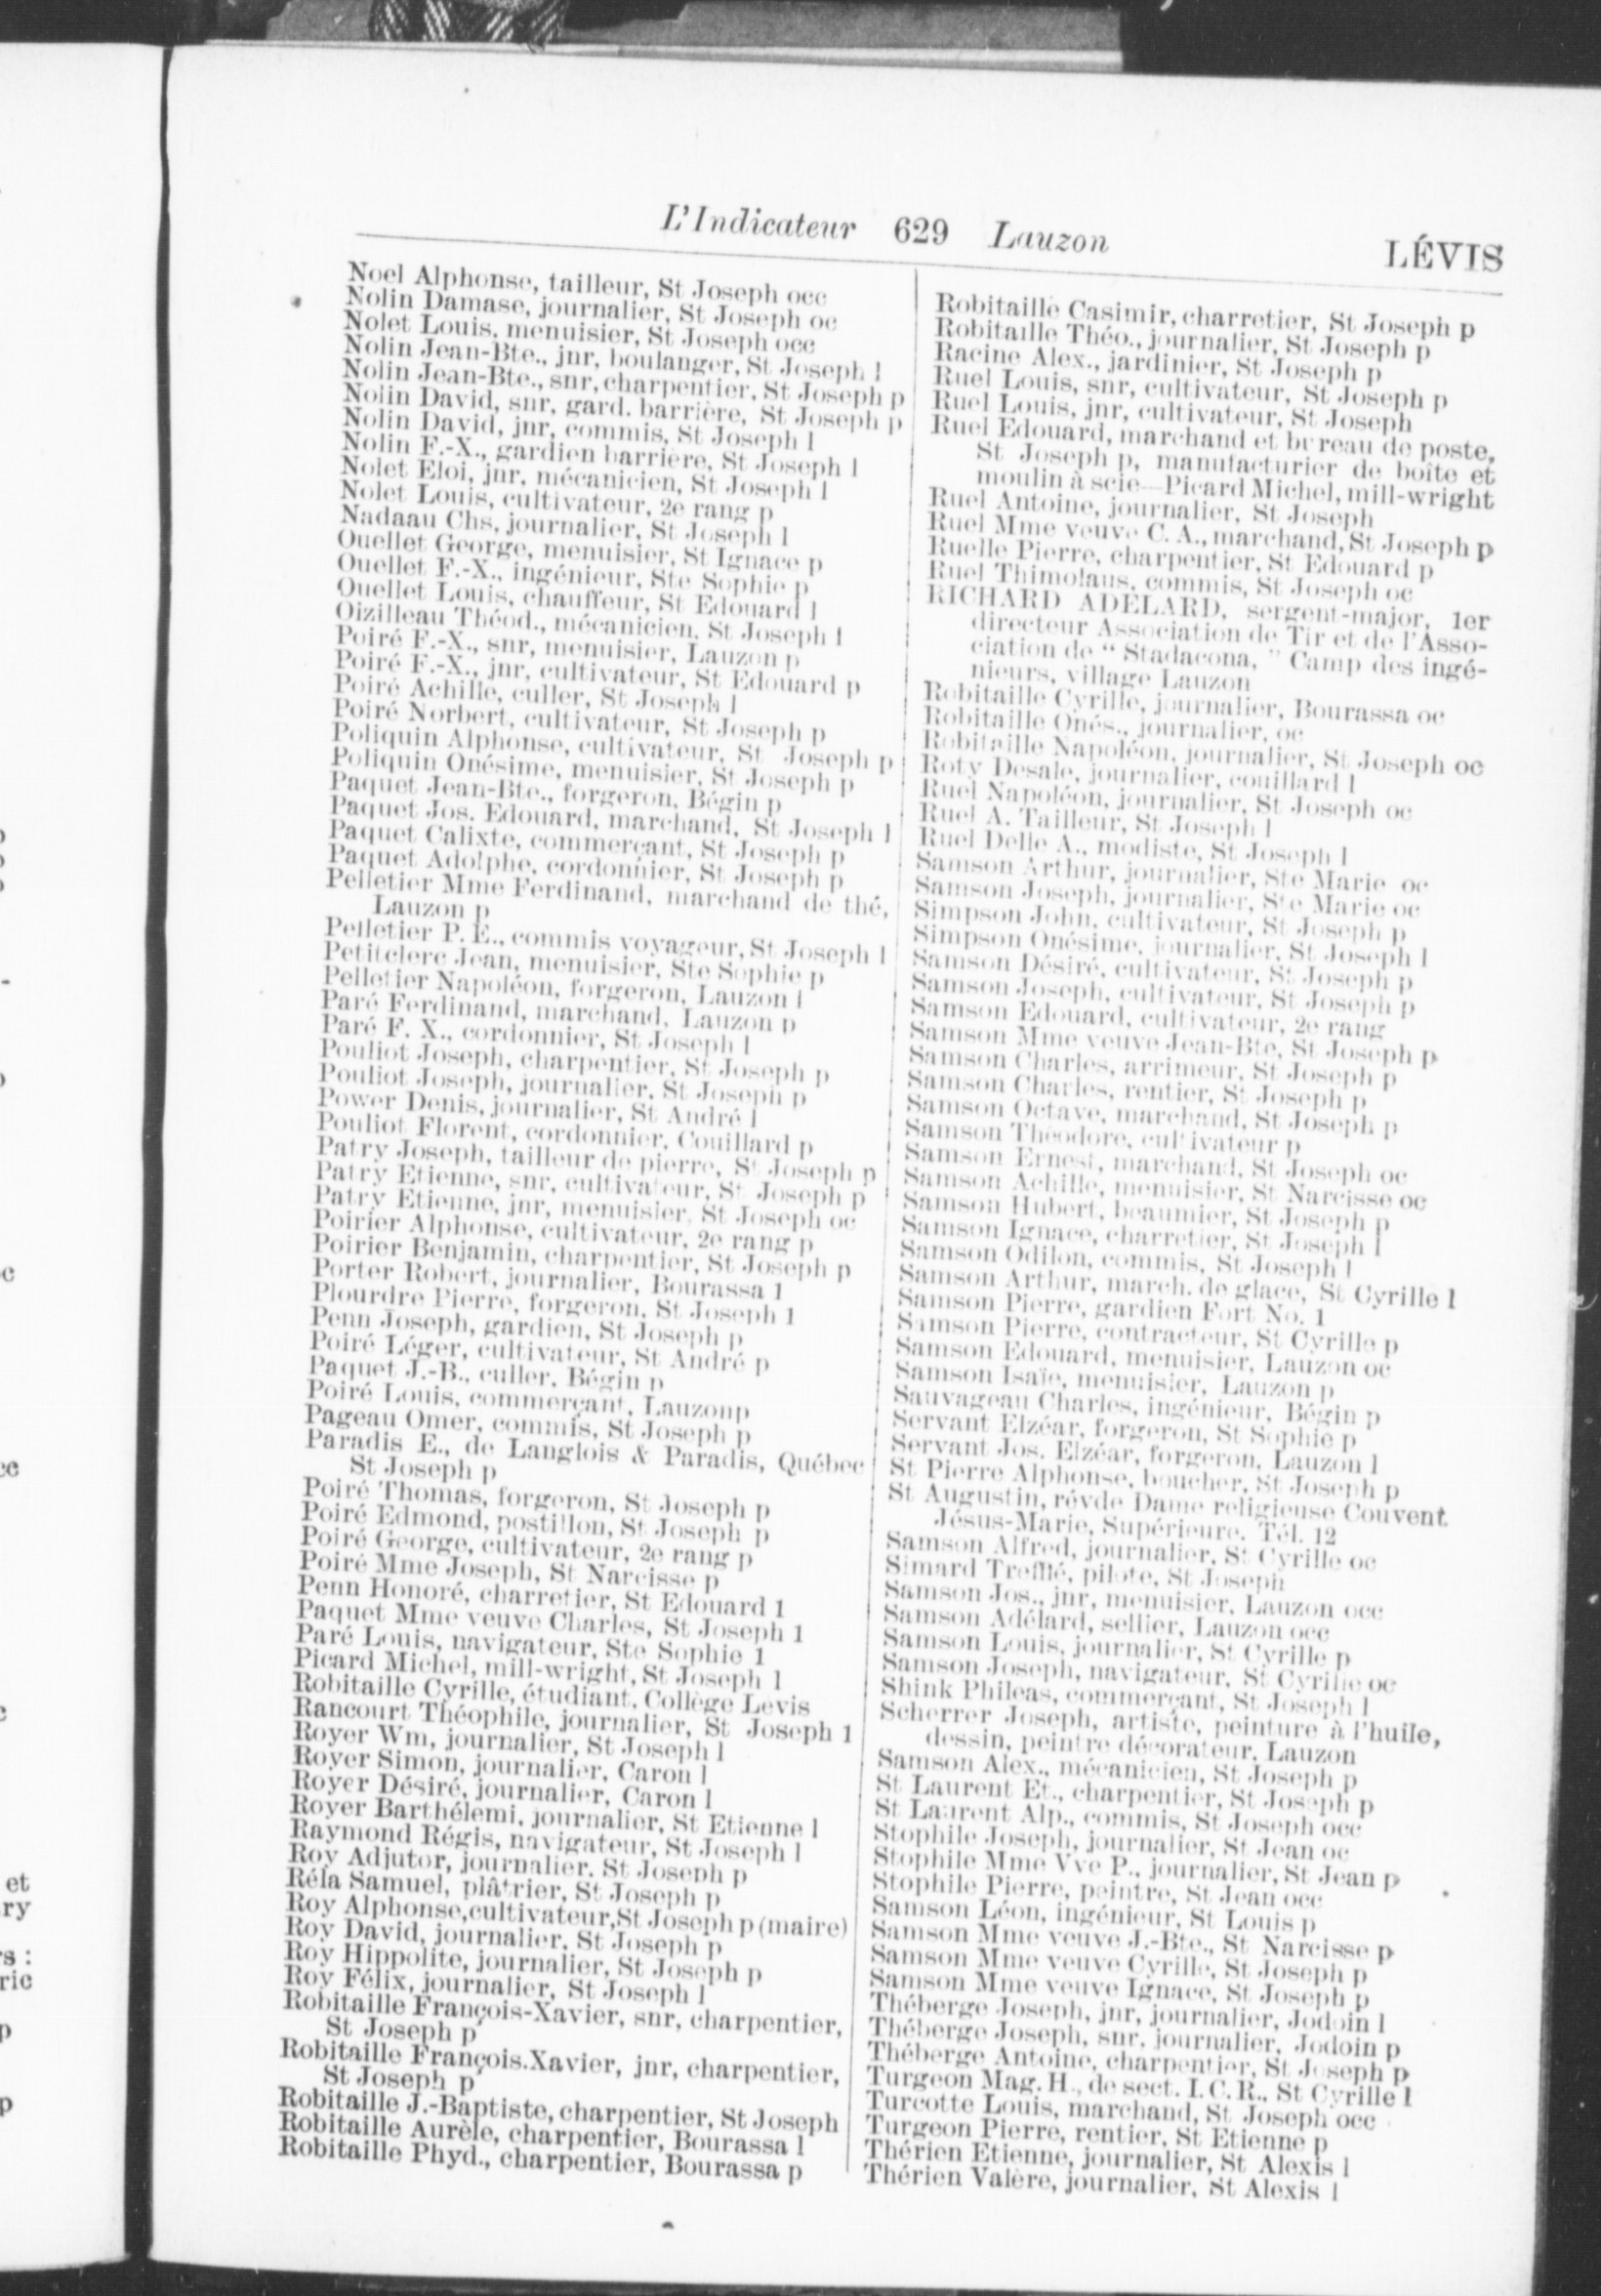 L'Indicateur 629 Lauzon
LÉVIS
Noel Alphonse, tailleur, St Joseph occ
Nolin Damase, journalier, St Joseph oc
Nolet Louis, menuisier, St Joseph occ
Nolin Jean-Bte., jnr, boulanger, St Joseph l
Nolin Jean-Bte., snr, charpentier, St Joseph p
Nolin David, snr, gard. barrière, St Joseph p
Nolin David, jnr, commis, St Joseph l
Nolin F.-X., gardien barrière, St Joseph l
Nolet Eloi, jnr, mécanicien, St Joseph l
Nolet Louis, cultivateur, 2e rang p
Nadaau Chs, journalier, St Joseph l
Ouellet George, menuisier, St Ignace p
Ouellet F.-X., ingénieur, Ste Sophie p
Ouellet Louis, chauffeur, St Edouard l
Oizilleau Théod., mécanicien, St Joseph l
Poiré F.-X., snr, menuisier, Lauzon p
Poiré F.-X., jnr, cultivateur, St Edouard p
Poiré Achille, culler, St Joseph l
Poiré Norbert, cultivateur, St Joseph p
Poliquin Alphonse, cultivateur, St Joseph p
Poliquin Onésime, menuisier, St Joseph p
Paquet Jean-Bte., forgeron, Bégin p
Paquet Jos. Edouard, marchand, St Joseph l
Paquet Calixte, commerçant, St Joseph p
Paquet Adolphe, cordonnier, St Joseph p
Pelletier Mme Ferdinand, marchand de thé,
Lauzon p
Pelletier P. E., commis voyageur, St Joseph l
Petitclerc Jean, menuisier, Ste Sophie p
Pelletier Napoléon, forgeron, Lauzon l
Paré Ferdinand, marchand, Lauzon p
Paré F. X., cordonnier, St Joseph l
Pouliot Joseph, charpentier, St Joseph p
Pouliot Joseph, journalier, St Joseph p
Power Denis, journalier, St André l
Pouliot Florent, cordonnier, Couillard p
Patry Joseph, tailleur de pierre, St Joseph p
Patry Etienne, snr, cultivateur, St Joseph p
Patry Etienne, jnr, menuisier, St Joseph oc
Poirier Alphonse, cultivateur, 2e rang p
Poirier Benjamin, charpentier, St Joseph p
Porter Robert, journalier, Bourassa l
Plourdre Pierre, forgeron, St Joseph l
Penn Joseph, gardien, St Joseph p
Poiré Léger, cultivateur, St André p
Paquet J.-B., culler, Bégin p
Poiré Louis, commerçant, Lauzonp
Pageau Omer, commis, St Joseph p
Paradis E., de Langlois & Paradis, Québec
St Joseph p
Poiré Thomas, forgeron, St Joseph p
Poiré Edmond, postillon, St Joseph p
Poiré George, cultivateur, 2e rang p
Poiré Mme Joseph, St Narcisse p
Penn Honoré, charretier, St Edouard l
Paquet Mme veuve Charles, St Joseph l
Paré Louis, navigateur, Ste Sophie l
Picard Michel, mill-wright, St Joseph l
Robitaille Cyrille, étudiant, Collège Levis
Rancourt Théophile, journalier, St Joseph l
Royer Wm, journalier, St Joseph l
Royer Simon, journalier, Caron l
Royer Désiré, journalier, Caron l
Royer Barthélemi, journalier, St Etienne l
Raymond Régis, navigateur, St Joseph l
Roy Adjutor, journalier, St Joseph p
Réla Samuel, plâtrier, St Joseph p
Roy Alphonse,cultivateur,St Joseph p (maire)
Roy David, journalier, St Joseph p
Roy Hippolite, journalier, St Joseph p
Roy Félix, journalier, St Joseph l
Robitaille François-Xavier, snr, charpentier,
St Joseph p
Robitaille François.Xavier, jnr, charpentier,
St Joseph p
Robitaille J.-Baptiste, charpentier, St Joseph
Robitaille Aurèle, charpentier, Bourassa l
Robitaille Phyd., charpentier, Bourassa p
Robitaille Casimir, charretier, St Joseph p
Robitaille Théo., journalier, St Joseph p
Racine Alex., jardinier, St Joseph p
Ruel Louis, snr, cultivateur, St Joseph p
Ruel Louis, jnr, cultivateur, St Joseph
Ruel Edouard, marchand et bureau de poste,
St Joseph p, manufacturier de boîte et
moulin à scie—Picard Michel, mill-wright
Ruel Antoine, journalier, St Joseph
Ruel Mme veuve C. A., marchand, St Joseph p
Ruelle Pierre, charpentier, St Edouard p
Ruel Thimolaus, commis, St Joseph oc
RICHARD ADÉLARD, sergent-major, 1er
directeur Association de Tir et de l'Asso-
ciation de " Stadacona, " Camp des ingé-
nieurs, village Lauzon
Robitaille Cyrille, journalier, Bourassa oc
Robitaille Onés., journalier, oc
Robitaille Napoléon, journalier, St Joseph oc
Roty Desale, journalier, couillard l
Ruel Napoléon, journalier, St Joseph oc
Ruel A. Tailleur, St Joseph l
Ruel Delle A., modiste, St Joseph l
Samson Arthur, journalier, Ste Marie oc
Samson Joseph, journalier, Ste Marie oc
Simpson John, cultivateur, St Joseph p
Simpson Onésime, journalier, St Joseph l
Samson Désiré, cultivateur, St Joseph p
Samson Joseph, cultivateur, St Joseph p
Samson Edouard, cultivateur, 2e rang
Samson Mme veuve Jean-Bte, St Joseph p
Samson Charles, arrimeur, St Joseph p
Samson Charles, rentier, St Joseph p
Samson Octave, marchand, St Joseph p
Samson Théodore, cultivateur p
Samson Ernest, marchand, St Joseph oc
Samson Achille, menuisier, St Narcisse oc
Samson Hubert, beaumier, St Joseph p
Samson Ignace, charretier, St Joseph l
Samson Odilon, commis, St Joseph l
Samson Arthur, march. de glace, St Cyrille l
Samson Pierre, gardien Fort No. 1
Samson Pierre, contracteur, St Cyrille p
Samson Edouard, menuisier, Lauzon oc
Samson Isaïe, menuisier, Lauzon p
Sauvageau Charles, ingénieur, Bégin p
Servant Elzéar, forgeron, St Sophie p
Servant Jos. Elzéar, forgeron, Lauzon l
St Pierre Alphonse, boucher, St Joseph p
St Augustin, révde Dame religieuse Couvent
Jésus-Marie, Supérieure. Tél. 12
Samson Alfred, journalier, St Cyrille oc
Simard Trefflé, pilote, St Joseph
Samson Jos., jnr, menuisier, Lauzon occ
Samson Adélard, sellier, Lauzon occ
Samson Louis, journalier, St Cyrille p
Samson Joseph, navigateur, St Cyrille oc
Shink Phileas, commerçant, St Joseph l
Scherrer Joseph, artiste, peinture à l'huile,
dessin, peintre décorateur, Lauzon
Samson Alex., mécanicien, St Joseph p
St Laurent Et., charpentier, St Joseph p
St Laurent Alp., commis, St Joseph occ
Stophile Joseph, journalier, St Jean oc
Stophile Mme Vve P., journalier, St Jean p
Stophile Pierre, peintre, St Jean occ
Samson Léon, ingénieur, St Louis p
Samson Mme veuve J.-Bte., St Narcisse p
Samson Mme veuve Cyrille, St Joseph p
Samson Mme veuve Ignace, St Joseph p
Théberge Joseph, jnr, journalier, Jodoin l
Théberge Joseph, snr, journalier, Jodoin p
Théberge Antoine, charpentier, St Joseph p
Turgeon Mag. H., de sect. I. C. R., St Cyrille l
Turcotte Louis, marchand, St Joseph occ
Turgeon Pierre, rentier, St Etienne p
Thérien Etienne, journalier, St Alexis l
Thérien Valère, journalier, St Alexis l